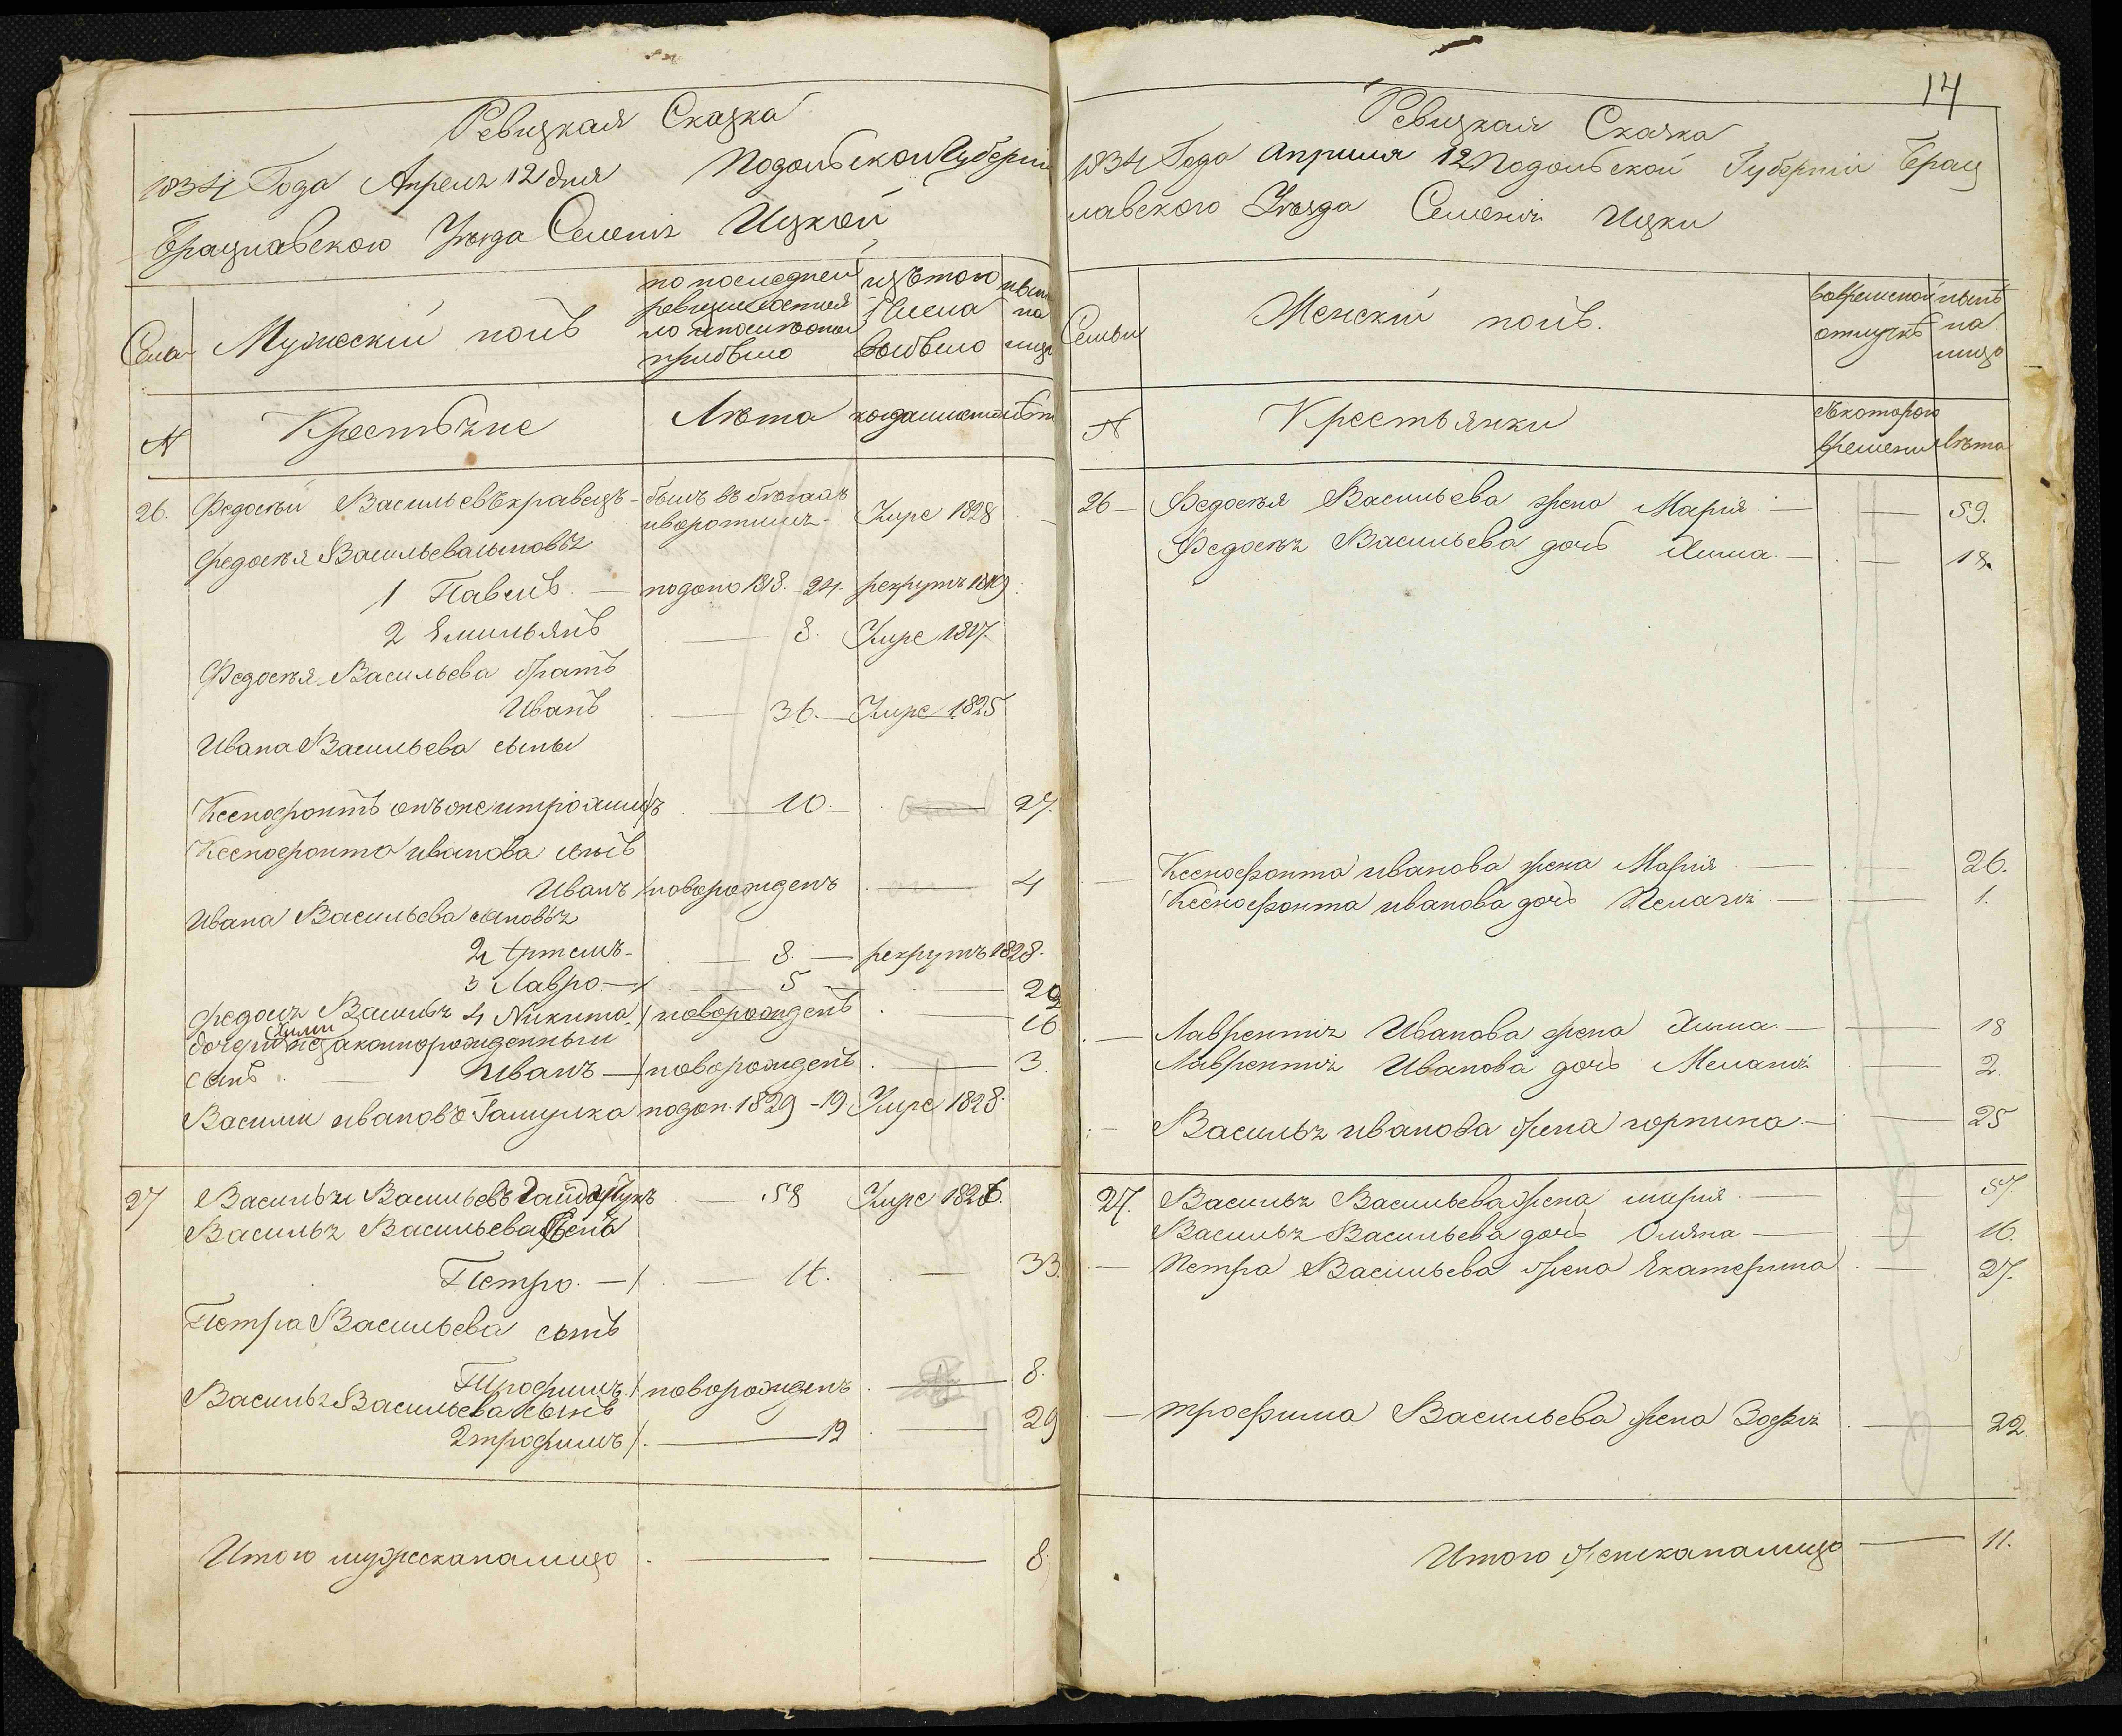 Ревизкая Сказка
1834 Года Апреля 12 дня Подольской Губерніи
Брацлавского Уѣзда Селенія Ицкой
Семьи
Мужескій полъ
по последней ревизіи состояло и после оной прибыло
изъ того числа выбыло
ныне на лицо
N
Крестьяне
Лѣта
когда именно
лѣта
26. Федосѣй Васильевъ кравецъ - былъ въ бѣгахъ и воротился - Умре 1828
Федосѣя Васильева сыновья
1 Павелъ. — подопо 1818. 24. рекрутъ 1819.
2 Емильянъ — 8. Умре 1817.
Федосѣя Васильева братъ
Иванъ — 36. — Умре 1825
Ивана Васильева сыны
Ксенофонтъ онъ же — 10. — 27.
Ксенофонта иванова сынъ
Иванъ новорожденъ — 4
Ивана Васильева сыновья
2 Артемъ - — 8. — рекрутъ 1828.
3 Лавро — — 5 — 22
4 Никита новорожденъ — 16
дочери Хими незаконнорожденный
сынъ — Иванъ — новорожденъ — 3.
Василий ивановъ подоп. 1829 - 19. Умре 1828.
27 Василій Васильевъ Гайдайчукъ — 58 Умре 1826.
Василья Васильева сынъ
Петро. — — 16. — 33.
Петра Васильева сынъ
Трофимъ новорожденъ — 8.
Василья Васильева сынъ
2 трофимъ — 12 — 29
Итого мужеска налицо — — 8.
14
Ревизкая Сказка
1834 Года Апреля 12 Подольской Губерніи Брац
лавского Уѣзда Селенія Ицки
Семьи
Женскій полъ.
во временной отлучкѣ
ныне на лицо
N
Крестьянки
съ которого времени
лѣта
26 — Федосѣя Васильева жена Марія — — 59.
Федосѣя Васильева дочь Хима. — — 18.
— Ксенофонта иванова жена Марія — — 26.
Ксенофонта иванова дочь Пелагія — — 1.
— Лаврентія Иванова жена Хима. — — 18
Лаврентія Иванова дочь Меланія — 2.
— Василья иванова жена горпина. — — 25
27. Василья Васильева жена марія. — 57.
Василья Васильева дочь Оляна — — 16.
— Петра Васильева жена Екатерина — 27.
— трофима Васильева жена Зофія — 22.
Итого женска налицо — 11.